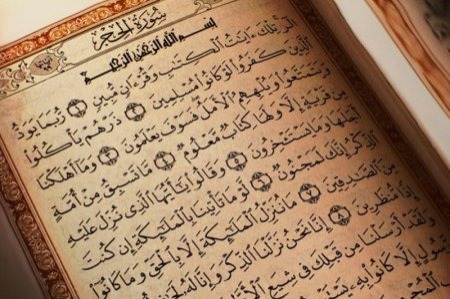 سُورَةُ الحِجْرِ
بِسْمِ اللَّهِ الرَّحْمَٰنِ الرَّحِيمِ
الٓر تِلْكَ ءَايَٰتُ ٱلْكِتَٰبِ وَقُرْءَانٍ مُّبِينٍ ١ رُّبَمَا يَوَدُّ
ٱلَّذِينَ كَفَرُوا۟ لَوْ كَانُوا۟ مُسْلِمِينَ ٢ ذَرْهُمْ يَأْكُلُوا۟
وَيَتَمَتَّعُوا۟ وَيُلْهِهِمُ ٱلْأَمَلُ فَسَوْفَ يَعْلَمُونَ ٣ وَمَآ أَهْلَكْنَا
مِن قَرْيَةٍ إِلَّا وَلَهَا كِتَابٌ مَّعْلُومٌ ٤ مَّا تَسْبِقُ مِنْ أُمَّةٍ
أَجَلَهَا وَمَا يَسْتَـْٔخِرُونَ ٥ وَقَالُوا۟ يَٰٓأَيُّهَا ٱلَّذِى نُزِّلَ عَلَيْهِ
ٱلذِّكْرُ إِنَّكَ لَمَجْنُونٌ ٦ لَّوْ مَا تَأْتِينَا بِٱلْمَلَٰٓئِكَةِ إِن كُنتَ
مِنَ ٱلصَّٰدِقِينَ ٧ مَا نُنَزِّلُ ٱلْمَلَٰٓئِكَةَ إِلَّا بِٱلْحَقِّ وَمَا كَانُوٓا۟
إِذًا مُّنظَرِينَ ٨ إِنَّا نَحْنُ نَزَّلْنَا ٱلذِّكْرَ وَإِنَّا لَهُۥ لَحَٰفِظُونَ
وَلَقَدْ أَرْسَلْنَا مِن قَبْلِكَ فِى شِيَعِ
رَّسُولٍ إِلَّا كَانُوا۟ بِهِۦ